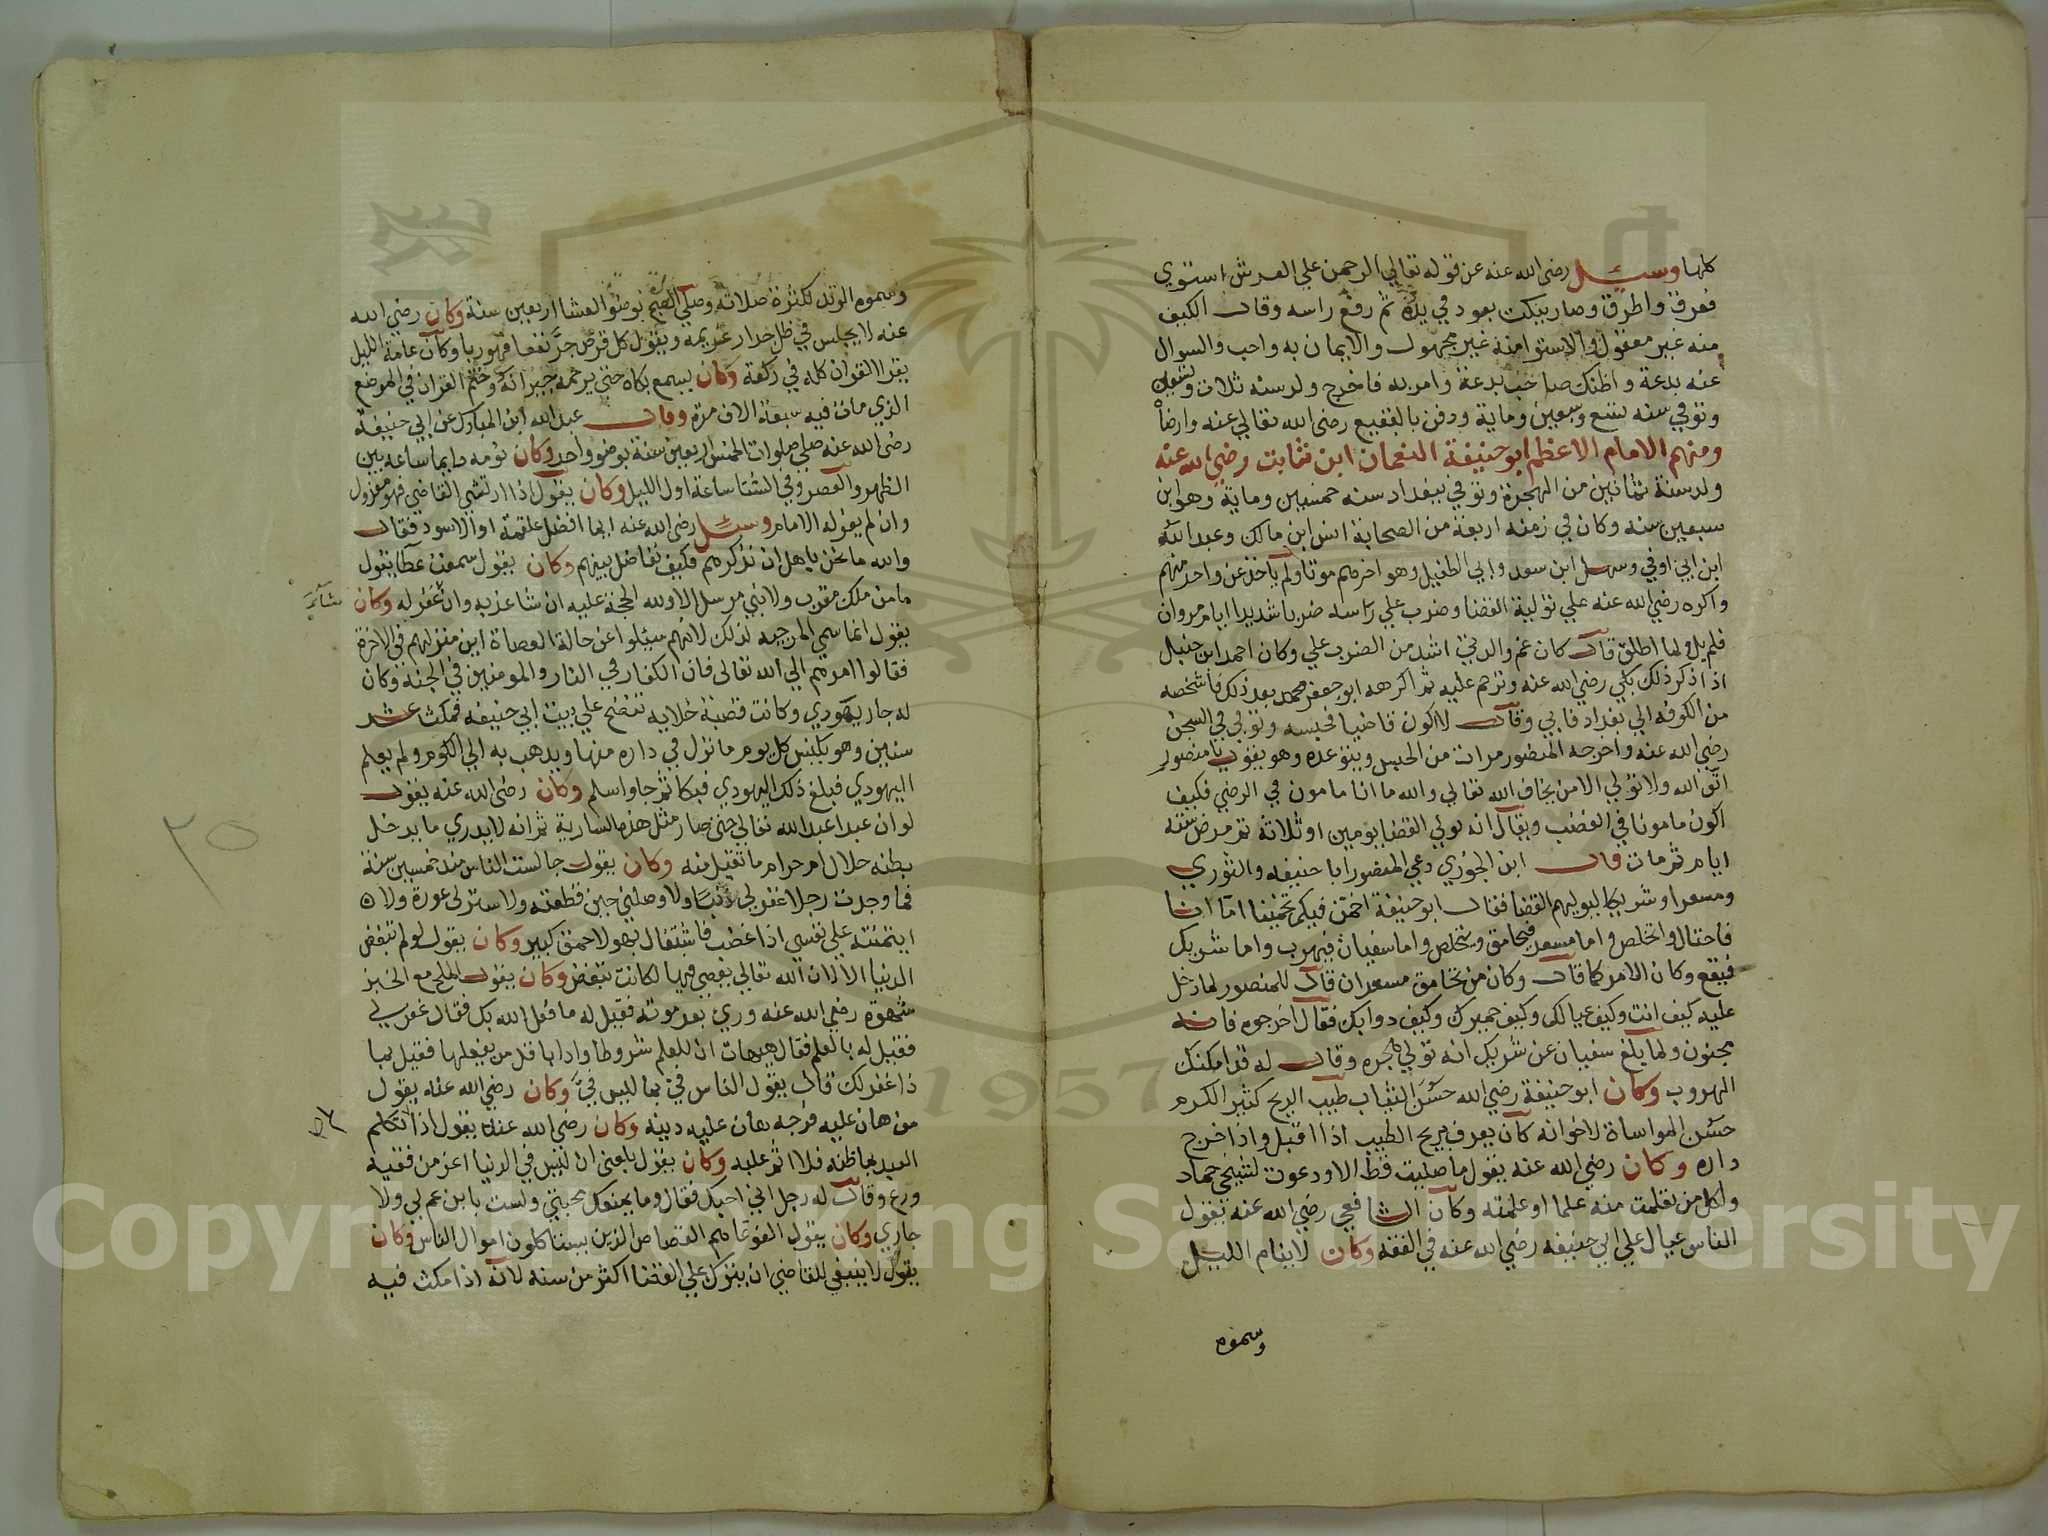 كلها وسئل رضي الله عنه عن قوله تعالي الرحمن علي العرش استوي
فعرق واطرق وصار ينكت بعود في يده ثم رفع راسه وقال الكيف
منه غير معقول والاستوا منه غير مجهول والايمان به واجب والسوال
عنه بدعة واظنك صاحب بدعة وامر به فاخرج ولد سنه ثلاث وتسعين
وتوفي سنه تسع وسبعين وماية ودفن بالبقيع رضي الله تعالي عنه وارضاه
ومنهم الامام الاعظم ابو حنيفة النعمان ابن ثابت رضي الله عنه
ولد سنة ثمانين من الهجرة وتوفي ببغداد سنه خمسين وماية وهو ابن
سبعين سنه وكان في زمنه اربعة من الصحابة انس ابن مالك وعبد الله
ابن ابي اوفي وسهل ابن سعد وابي الطفيل وهو اخرهم موتا ولم ياخذ عن واحد منهم
واكره رضي الله عنه علي تولية القضا وضرب علي راسه ضربا شديدا ايام مروان
فلم يل ولما اطلق قال كان غم والدتي اشد من الضرب علي وكان احمد ابن حنبل
اذا ذكر ذلك بكي رضي الله عنه وترحم عليه ثم اكرهه ابو جعفر محمد بعد ذلك فاشخصه
من الكوفه الي بغداد فابي وقال لا اكون قاضيا فحبسه وتوفي في السجن
رضي الله عنه واخرجه المنصور مرات من الحبس ويتوعده وهو يقول يا منصور
اتق الله ولا تولي الا من يخاف الله تعالي والله ما انا مامون في الرضي فكيف
اكون مامونا في الغضب ويقال انه تولي القضا يومين او ثلاثة ثم مرض ستة
ايام ثم مات قال ابن الجوزي دعي المنصور ابا حنيفه والثوري
ومسعرا وشريكا ليوليهم القضا فقال ابو حنيفة اخمن فيكم تخمينا اما انا
فاحتال واتخلص واما مسعر فيحامق ويتخلص واما سفيان فيهرب واما شريك
فيقع وكان الامر كما قال وكان من تحامق مسعر ان قال للمنصور لما دخل
عليه كيف انت وكيف عيالك وكيف حميرك وكيف دوابك فقال اخرجوه فانه
مجنون ولما بلغ سفيان عن شريك انه تولي هجره وقال له قد امكنك
الهروب وكان ابو حنيفة رضي الله حسن الثياب طيب الريح كثير الكرم
حسن المواساة لاخوانه كان يعرف بريح الطيب اذا اقبل واذا خرج
داره وكان رضي الله عنه يقول ما صليت قط الا ودعوت لشيخي حماد
ولكل من تعلمت منه علما او علمته وكان الشافعي رضي الله عنه يقول
الناس عيال علي ابي حنيفه رضي الله عنه في الفقه وكان لا ينام الليل
وسموه
وسموه الوتد لكثرة صلاته وصلي الصبح بوضوء العشا اربعين سنة وكان رضي الله
عنه لا يجلس في ظل جدار غريمه ويقول كل قرض جر نفعا فهو ربا وكان عامة الليل
يقرا القران كله في ركعة وكان يسمع بكاه حتي يرحمه جيرانه وختم القران في الموضع
الذي مات فيه سبعة الاف مرة وقال عبد الله ابن المبارك عن ابي حنيفة
رضي الله عنه صلي صلوات الخمس اربعين سنة بوضو واحد وكان نومه دايما ساعة بين
الظهر والعصر وفي الشتا ساعة اول الليل وكان يقول اذا ارتشي القاضي فهو معزول
وان لم يعزله الامام وسئل رضي الله عنه ايما افضل علقمة او الاسود فقال
والله ما نحن باهل ان نذكرهم فكيف نفاضل بينهم وكان يقول سمعت عطا يقول
ما من ملك مقرب ولا نبي مرسل الا ولله الحجة عليه ان شا عذبه وان غفر له وكان
يقول انما سمي المرجيه لذلك لانهم سيلوا عن حالة العصاة اين منزلهم في الاخرة
فقالوا امرهم الي الله تعالي فان الكفار في النار والمومنين في الجنة وكان
له جار يهودي وكانت قصبة خلايه تنضح علي بيت ابي حنيفه فمكث عشر
سنين وهو يكنس كل يوم ما نزل في داره منها ويدهب به الي الكوم ولم يعلم
اليهودي فبلغ ذلك اليهودي فبكا ثم جا واسلم وكان رضي الله عنه يقول
لو ان عبدا عبد الله تعالي حتي صار مثل هذه السارية ثم انه لا يدري ما يدخل
بطنه حلال ام حرام ما تقبل منه وكان يقول جالست الناس منذ خمسين سنة
فما وجدت رجلا غفر لي ذنبا ولا وصلني حين قطعته ولا ستر لي عورة ولا
ايتمنته علي نفسي اذا غضب فاشتغال بهولا حمق كبير وكان يقول لو لم تبغض
الدنيا الا لان الله تعالي يعصي فيها لكانت تبغض وكان يقول الملح مع الخبز
شهوة رضي الله عنه وري بعد موته فقيل له ما فعل الله بك فقال غفر لي
فقيل له بالعلم فقال هيهات ان للعلم شروطا وادابا قل من يفعلها فقيل بما
ذا غفر لك قال بقول الناس في بما ليس في وكان رضي الله عنه يقول
من هان عليه فرجه هان عليه دينه وكان رضي الله عنه يقول اذا تكلم
العبد بما ظنه فلا اثم عليه وكان يقول بلغني ان ليس في الدنيا اعز من فقيه
ورع وقال له رجل اني احبك فقال وما يمنعك محبتي ولست بابن عم لي ولا
جاري وكان يقول الغوغا هم القصاص الذين يستاكلون اموال الناس وكان
يقول لا ينبغي للقاضي ان يترك علي القضا اكثر من سنه لانه اذا مكث فيه
شا
٢٥
Copyright © King Saud University
1957